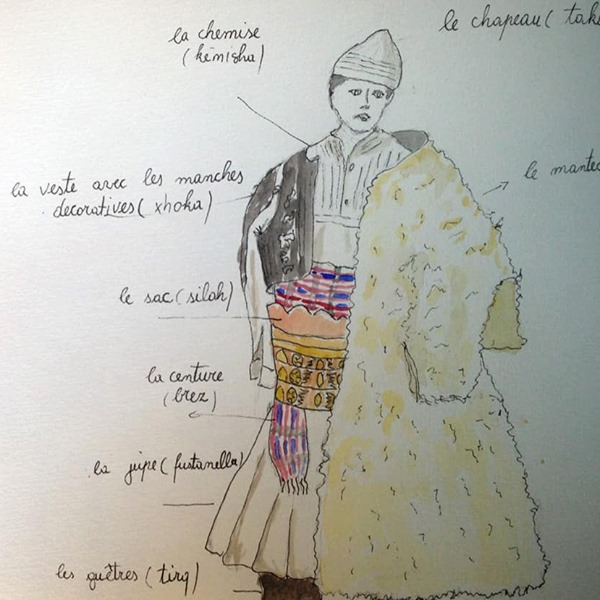 la chemise
(këmisha)
le chapeau (tak
le mantea
la veste avec les manches
decoratives (xhoka)
le sac (silah)
la centure
(brez)
la jupe (fustanella)
les guêtres (tirq)